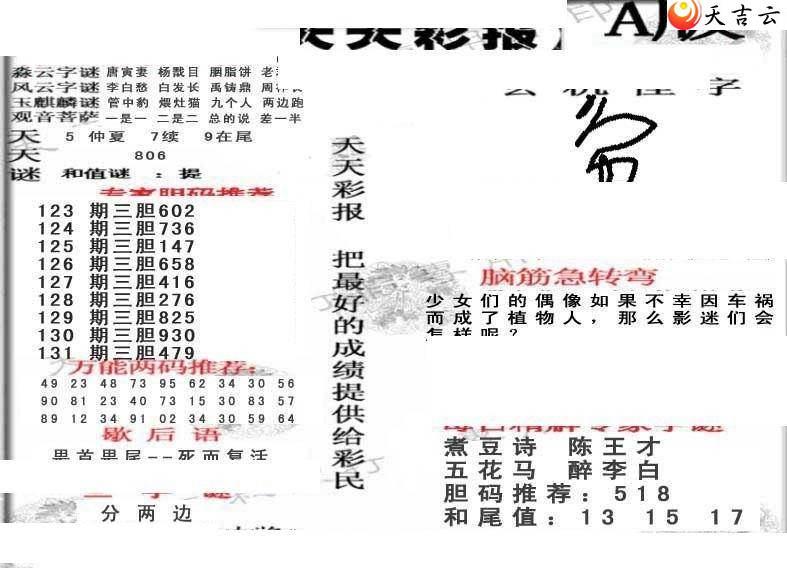 天吉云
天天彩报
森云字谜 唐寅妻 杨戬目 胭脂饼 老
风云字谜 李白愁 白发长 禹铸鼎
玉麒麟谜 管中豹 煨灶猫 九个人 两边跑
观音菩萨 一是一 二是二 总的说 差一半
天 5 仲夏 7续 9在尾
天 806
谜 和值谜 : 提
专家胆码推荐
123 期三胆602
124 期三胆736
125 期三胆147
126 期三胆658
127 期三胆416
128 期三胆276
129 期三胆825
130 期三胆930
131 期三胆479
万能两码推荐:
49 23 48 73 95 62 34 30 56
90 81 23 40 73 15 30 83 57
89 12 34 91 02 34 30 59 64
歇后语
畏首畏尾--死而复活
分两边
天天彩报 把最好的成绩提供给彩民
脑筋急转弯
少女们的偶像如果不幸因车祸
而成了植物人，那么影迷们会
怎样呢？
煮豆诗 陈王才
五花马 醉李白
胆码推荐：518
和尾值：13 15 17